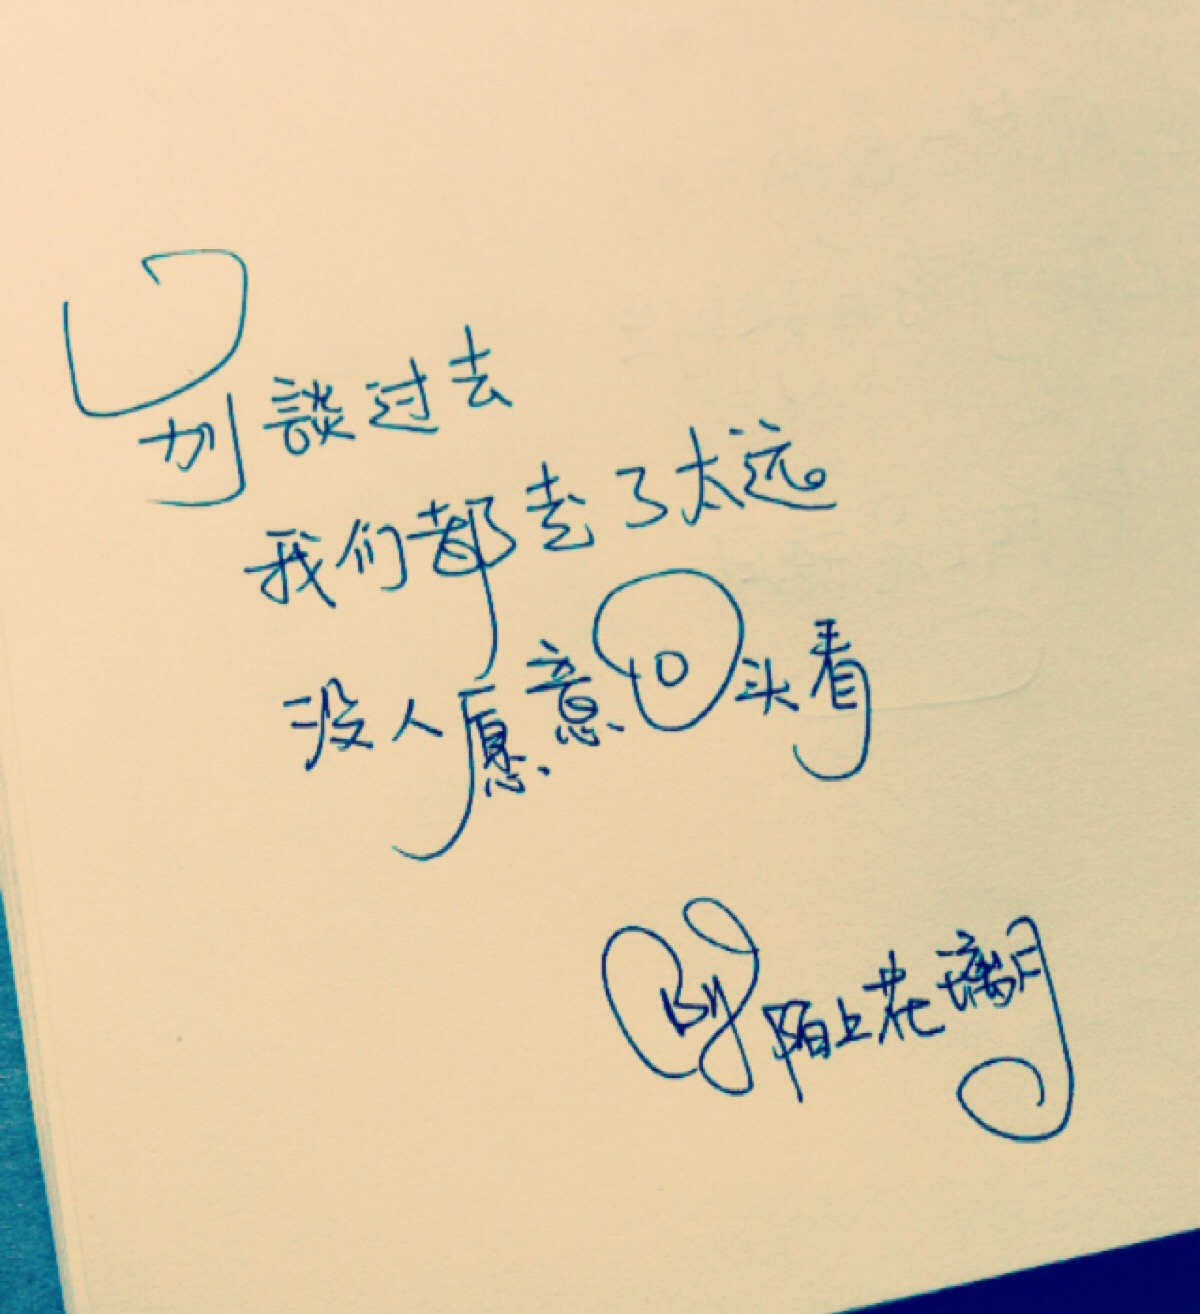 别談过去
我们都走了太远
没人愿意回头看
By陌上花璃月